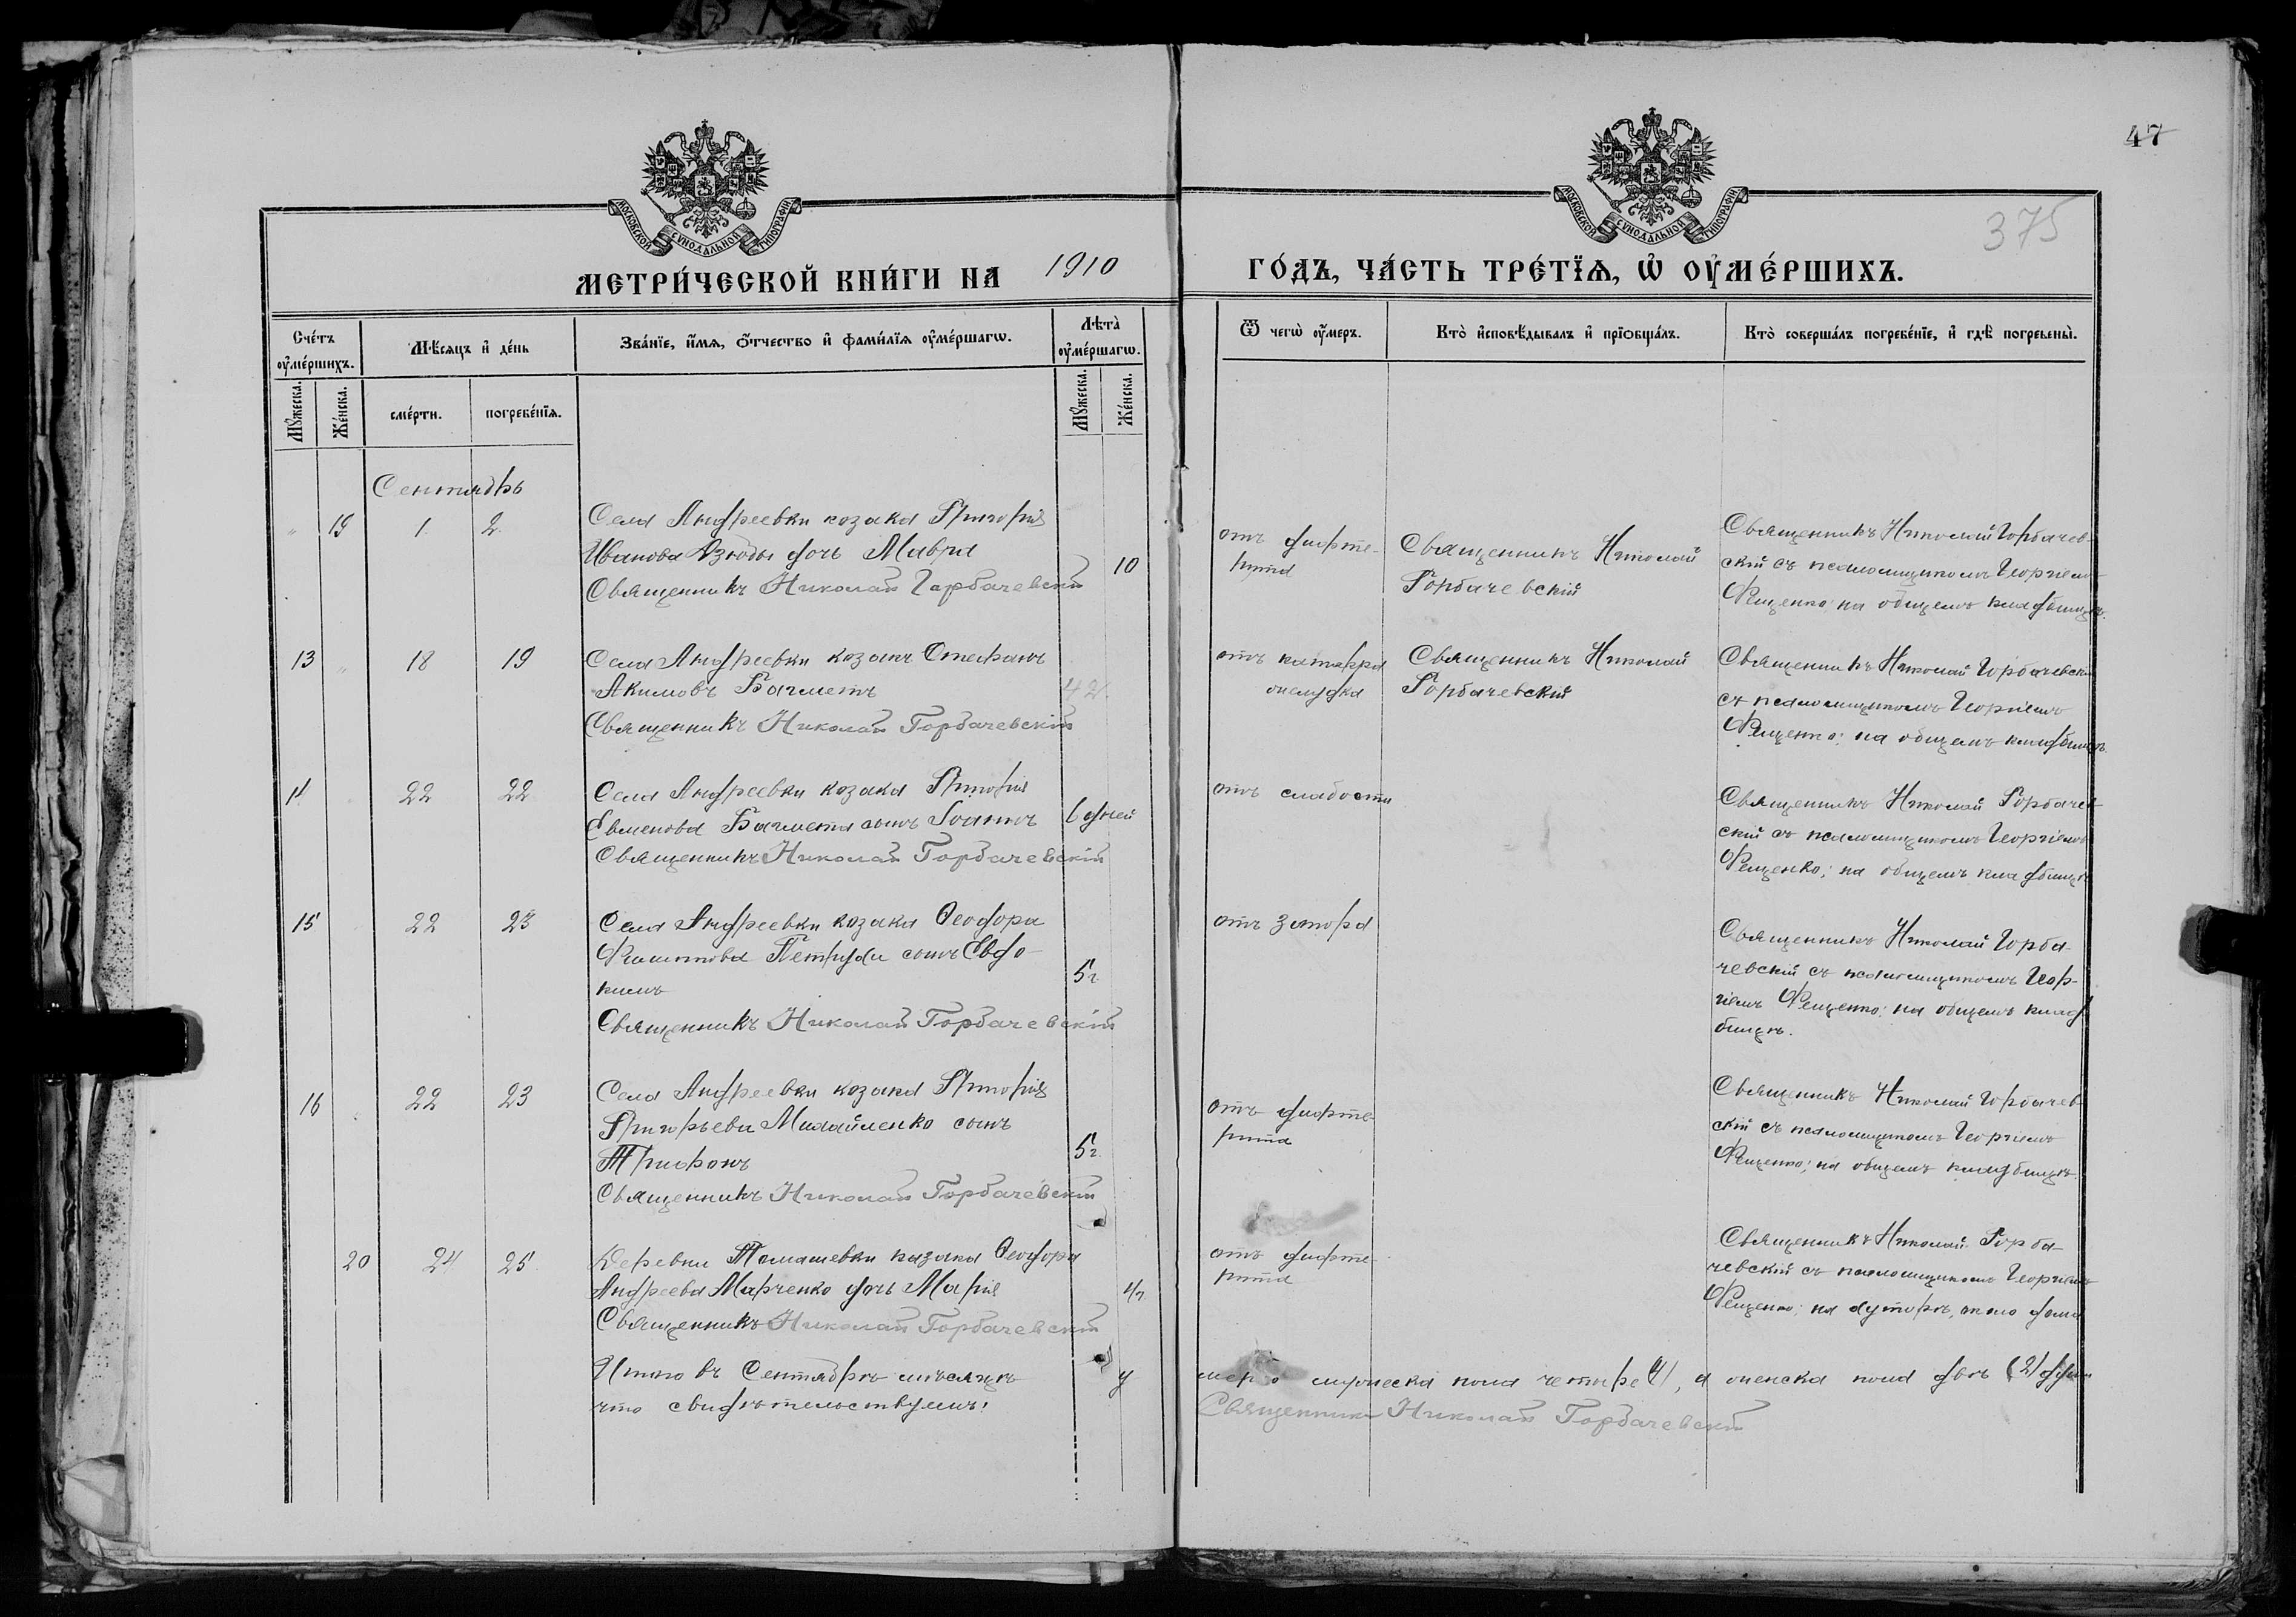 47
375
МОСКОВСКОЙ СѴНОДАЛЬНОЙ ТИПОГРАФІИ
МОСКОВСКОЙ СѴНОДАЛЬНОЙ ТИПОГРАФІИ
МЕТРИ́ЧЕСКОЙ КНИ́ГИ НА 1910 ГО́ДЪ, ЧА́СТЬ ТРЕ́ТЇѦ, Ѡ҆ ОУ҆МЕ́РШИХЪ.
Сче́тъ оу҆ме́ршихъ.
Мꙋжеска.
Же́нска.
Мѣ́сяцъ и҆ де́нь
сме́рти.
погребе́нїѧ.
Зва́нїе, и҆́мѧ, ѻ҆́тчество и҆ фами́лїѧ оу҆ме́ршагѡ.
Лѣта̀ оу҆ме́ршагѡ.
Мꙋжеска.
Же́нска.
Ѿ чегѡ̀ оу҆́меръ.
Кто̀ и҆сповѣ́дывалъ и҆ прїѻбща́лъ.
Кто̀ соверша́лъ погребе́нїе, и҆ гдѣ̀ погребены̀.
Сентябрь
19 1 2
Села Андреевки козака Григорія
Иванова дочь Мавра
Священникъ Николай Горбачевскій
10
отъ дифте-
рита
Священникъ Николай
Горбачевскій
Священникъ Николай Горбачев-
скій съ псаломщикомъ Георгіемъ
Фещенко; на общемъ кладбищѣ.
13 18 19
Села Андреевки козакъ Стефанъ
Акимовъ Багметъ
Священникъ Николай Горбачевскій
42
отъ катарра
желудка
Священникъ Николай
Горбачевскій
Священникъ Николай Горбачевскій
съ псаломщикомъ Георгіемъ
Фещенко; на общемъ кладбищѣ
14 22 22
Села Андреевки козака Григорія
Евменова Багмета сынъ Іоаннъ
Священникъ Николай Горбачевскій
6 дней
отъ слабости
Священникъ Николай Горбачев-
скій съ псаломщикомъ Георгіемъ
Фещенко; на общемъ кладбищѣ
15 22 23
Села Андреевки козака Ѳеодора
Филиппова сынъ Евдо-
кимъ
Священникъ Николай Горбачевскій
5 г.
отъ запора
Священникъ Николай Горба-
чевскій съ псаломщикомъ Геор-
гіемъ Фещенко; на общемъ клад
бищѣ.
16 22 23
Села Андреевки козака Григорія
Григорьева Михайленко сынъ
Трифонъ
Священникъ Николай Горбачевскій
5 г.
отъ дифте-
рита
Священникъ Николай Горбачев
скій съ псаломщикомъ Георгіемъ
Фещенко; на общемъ кладбищѣ.
20 24 25
Деревни Томашевки казака Ѳеодора
Андреева Марченко дочь Марія
Священникъ Николай Горбачевскій
4 г.
отъ дифте-
рита
Священникъ Николай Горба-
чевскій съ псаломщикомъ Георгіемъ
Фещенко; на хуторѣ, около дома
Итого въ Сентябрѣ мѣсяцѣ умерло мужеска пола четыре (4), а женска пола двѣ (2) души
что свидѣтельствуемъ: Священникъ Николай Горбачевскій